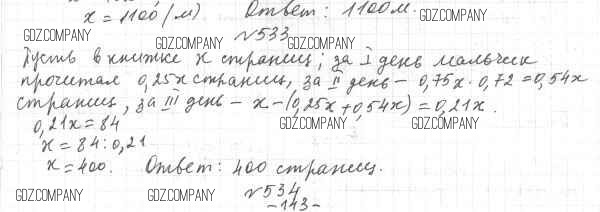 x = 1100 (м) Ответ: 1100 м. GDZ.COMPANY
GDZ.COMPANY GDZ.COMPANY №533 GDZ.COMPANY
Пусть в книжке x страниц; за I день мальчик
прочитал 0,25x страниц, за II день – 0,75x · 0,72 = 0,54x
страниц, за III день – x – (0,25x + 0,54x) = 0,21x.
0,21x = 84 GDZ.COMPANY GDZ.COMPANY
x = 84 : 0,21
x = 400. Ответ: 400 страниц.
GDZ.COMPANY GDZ.COMPANY №534 GDZ.COMPANY
– 143 –